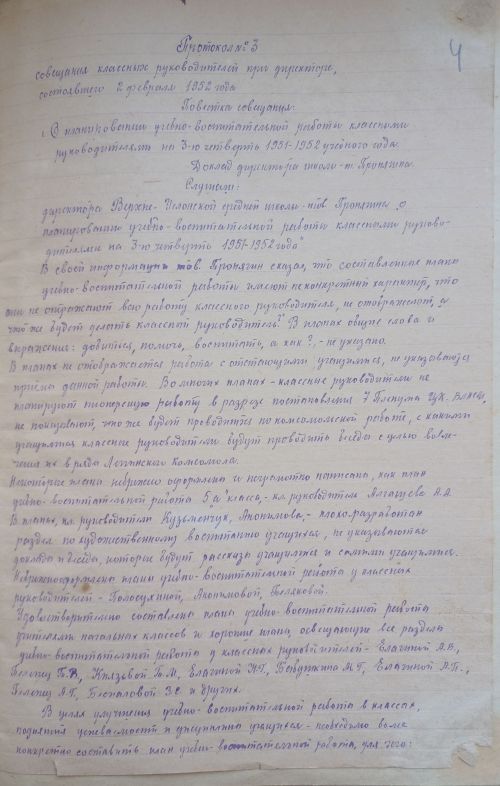 Протокол № 3
4
совещания классных руководителей при директоре,
состоявшего 2 февраля 1952 года
Повестка совещания:
1. О планировании учебно-воспитательной работы классными
руководителями на 3-ю четверть 1951-1952 учебного года.
Доклад директора школы-т. Пронягина.
Слушали:
директора Верхне- средней школы-тов. Пронягина „О
планировании учебно-воспитательной работы классными руково-
дителями на 3-ю четверть 1951-1952 года"
В своей информации тов. Пронягин сказал, что составленные планы
учебно-воспитательной работы имеют неконкретный характер, что
они не отражают всю работу классного руководителя, не отображают, „а
что же будет делать классный руководитель?" В планах общие слова и
выражения: добиться, помочь, воспитать, а как?,- не указано.
В планах не отображается работа с отстающими учащимися, не указываются
приёмы данной работы. Во многих планах-классные руководители не
планируют пионерскую работу в разрезе постановления 7 Пленума ЦК. ВЛКСМ,
не показывают, что же будет проводиться по комсомольской работе, с какими
учащимися классные руководители будут проводить беседы с целью вовле-
чения их в ряды Ленинского Комсомола.
Некоторые планы небрежно оформлены и неграмотно написаны, как план
учебно-воспитательной работы 5 „а" класса,- кл. руководителя А.А.
В планах, кл. руководителей Кузьменчук, Анонимова,- плохо разработан
раздел по художественному воспитанию учащихся, не указываются
доклады и беседы, которые будут рассказы учащимися и самими учащимися.
Небрежно оформлены планы учебно-воспитательной работы у классных
руководителей- Голосухиной, Анонимовой, Беляковой.
Удовлетворительно составлены планы учебно-воспитательной работы
учителями начальных классов и хорошие планы, освещающие все разделы
учебно-воспитательной работы у классных руководителей- Елагиной А.В.,
Князевой Т.М, Елагиной Н.Г., М.Г, Елагиной А.П.,
А.Г, Беспаловой З.С и других.
В целях улучшения учебно-воспитательной работы в классах,
поднятия успеваемости и дисциплины учащихся- необходимо более
конкретно составить план учебно-воспитательной работы, для чего: